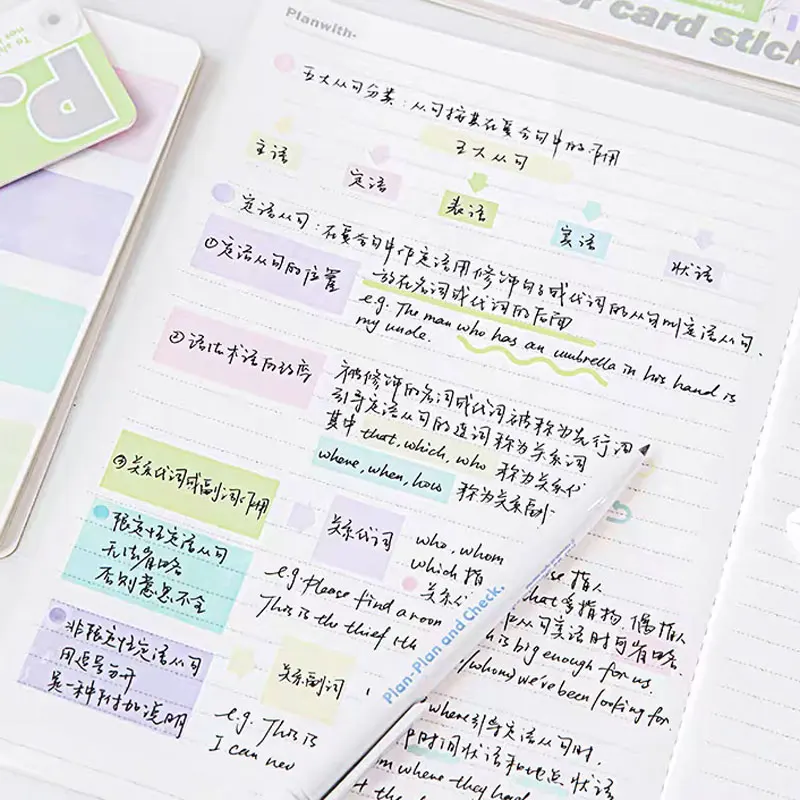 Planwith-
五大从句分类：从句按其在复合句中的作用
五大从句
主语
定语
表语
宾语
状语
定语从句：在复合句中作定语用修饰句子或代词的从句叫定语从句.
①定语从句的位置
放在名词或代词的后面
e.g. The man who has an umbrella in his hand is
my uncle.
②语法术语的改变
被修饰的名词或代词被称为先行词
引导定语从句的连词称为关系词
其中 that, which, who 称为关系代
where, when, how 称为关系副
③关系代词或副词作用
关系代词
who, whom
which 指
关系代
限定性定语从句
无法省略
否则意思不全
e.g. Please find a room
This is the thief th
指人
that多指物 偶指人
从句宾语时可省略.
is big enough for us.
(whom) we've been looking for.
非限定性定语从句
用逗号分开
是一种附加说明
关系副词
e.g. This is
I can nev
where引导定语从句时.
时间状语和地点状语
m where they had
Plan-Plan and Check.
card stick
P.